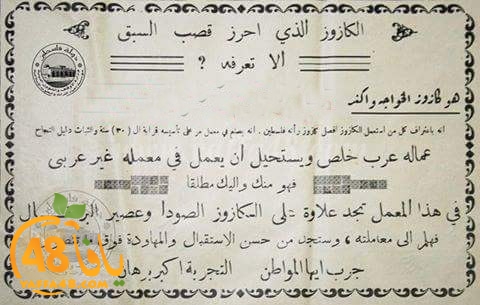 الكازوز الذي احرز قصب السبق
ألا تعرفه ؟
دولة فلسطين
هو كازوز الخواجه واكند
انه باعتراف كل من استعمل الكازوز افضل كازوز رأته فلسطين . انه يصنع في معمل مر على تأسيسه قرابة ال (٣٠) سنة والثبات دليل النجاح
عماله عرب خلص ويستحيل أن يعمل في معمله غير عربي
فهو منك واليك مطلقا
في هذا المعمل تجد علاوة على الكازوز الصودا وعصير
فهلم الى معاملته ، وستجد من حسن الاستقبال والمهاودة فوق ما تنتظر
جرب ايها المواطن التجربة اكبر برهان
يافا 48